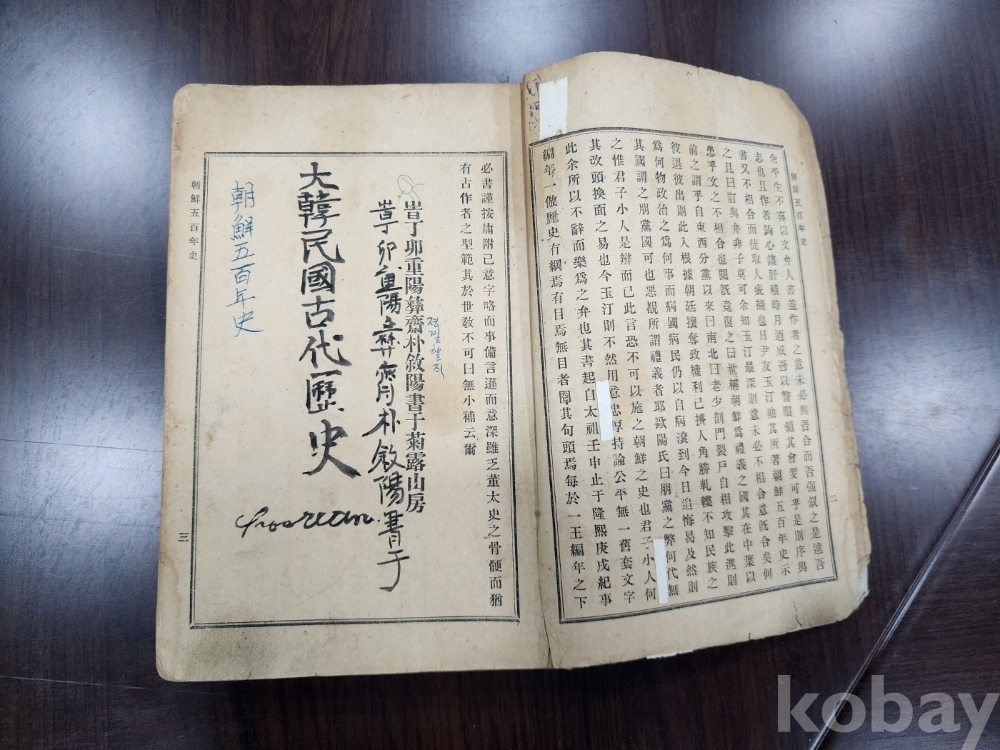 朝鮮五百年史
二
余平生不喜以文弁人書蓋作者之意未必與吾合而吾强叙之是違吾
志也且作者鉤心鏤肝積時月迺成吾以瞥眼領其會要可乎是則序與
書又不相合而徒取人疵摘也日尹友玉汀袖其所著朝鮮五百年史示
之且曰訂與弁非子莫可余知玉汀最深則意未必不相合意旣合矣何
患乎文之不相合也閱旣竟復之曰世稱朝鮮爲禮義之國其在中葉以
前之謂乎自東西分黨以來曰南北曰老少剖門裂戶自相攻擊此進則
彼退彼出則此入根據朝廷攘奪政權利己擠人角勝軋轢不知民族之
爲何物政治之爲何事而病國病民仍以自病滾到今日追悔曷及然則
其國謂之朋黨國可也惡覩所謂禮義者耶歐陽氏曰朋黨之弊何代無
之惟君子小人是辨而已此言恐不可以施之朝鮮之史也君子小人何
其改頭換面之易也今玉汀則不然用意忠厚持論公平無一舊套文字
此余所以不辭而樂爲之弁也其書起自太祖壬申止于隆熙庚戌紀事
編年一倣麗史有綱焉有目焉無目者圈其句頭焉每於一王編年之下
必書謹按庸附己意字略而事備言遜而意深雖乏董太史之骨骾而猶
有古作者之型範其於世敎不可曰無小補云爾
旹丁卯重陽彝齋朴敘陽書于菊露山房
旹丁卯重陽彝齋朴敘陽書于
大韓民國古代歷史
朝鮮五百年史
朝鮮五百年史
三
kobay